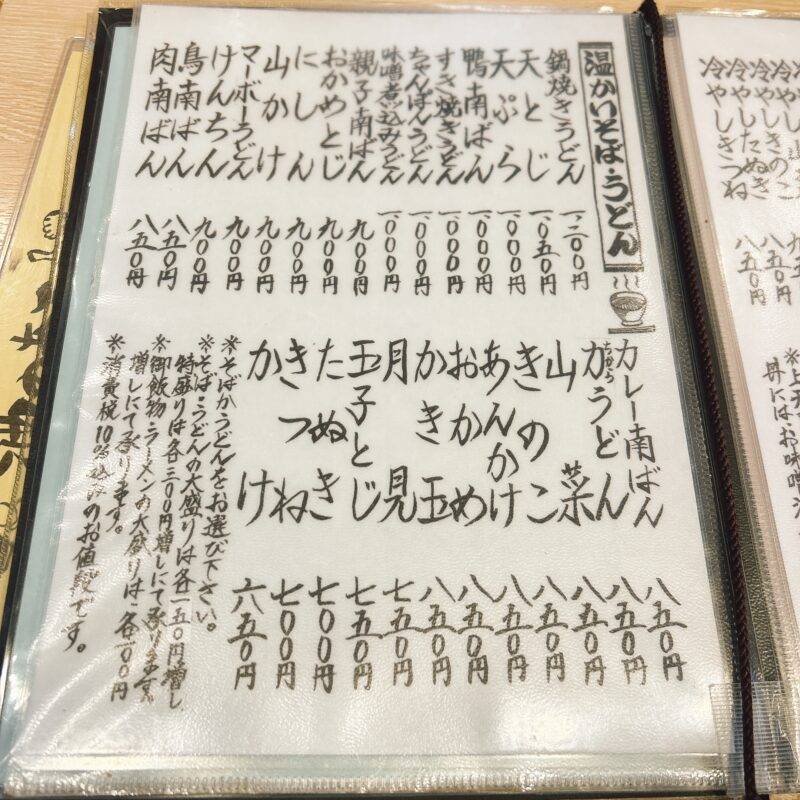 温かいそば・うどん
鍋焼きうどん 一、二〇〇円
天とじ 一、〇五〇円
天ぷら 一、〇〇〇円
鴨南ばん 一、〇〇〇円
すき焼きうどん 一、〇〇〇円
ちゃんぽんうどん 一、〇〇〇円
味噌煮込みうどん 一、〇〇〇円
親子南ばん 九〇〇円
おかめとじ 九〇〇円
にしん 九〇〇円
山かけ 九〇〇円
マーボーうどん 九〇〇円
けんちん 九〇〇円
鳥南ばん 八五〇円
肉南ばん 八五〇円
カレー南ばん 八五〇円
ちから
力うどん 八五〇円
山菜 八五〇円
きのこ 八五〇円
あんかけ 八五〇円
おかめ 八五〇円
かき玉 八五〇円
月見 七五〇円
玉子とじ 七五〇円
たぬき 七〇〇円
きつね 七〇〇円
かけ 六五〇円
※そばかうどんをお選び下さい。
※そば・うどんの大盛りは各一五〇円増し
特盛りは各三〇〇円増しにて承ります。
※御飯物・ラーメンの大盛りは、各一〇〇円
増しにて承ります。
※消費税10%込みのお値段です。
冷やしきのこ
冷やしたぬき 八五〇円
冷やしきつね 八五〇円
丼にはお味噌